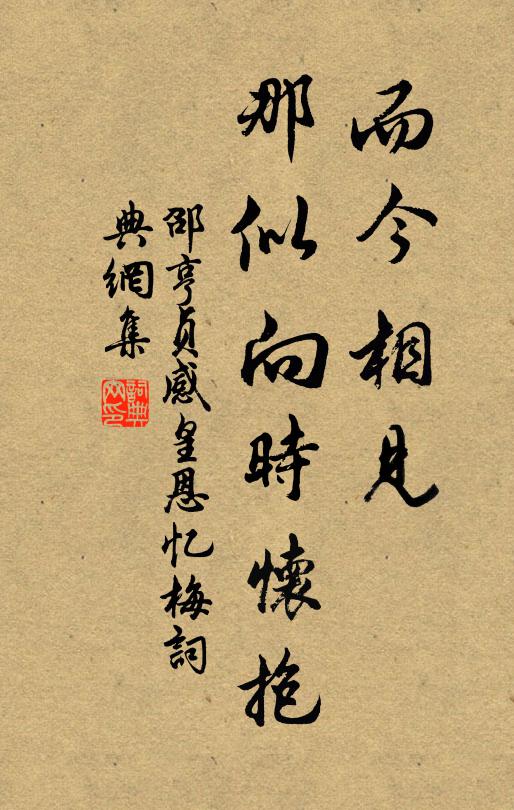 而今相見
那似向時懷抱
邵亨貞感皇恩忆梅詞
典網集
詞典网印